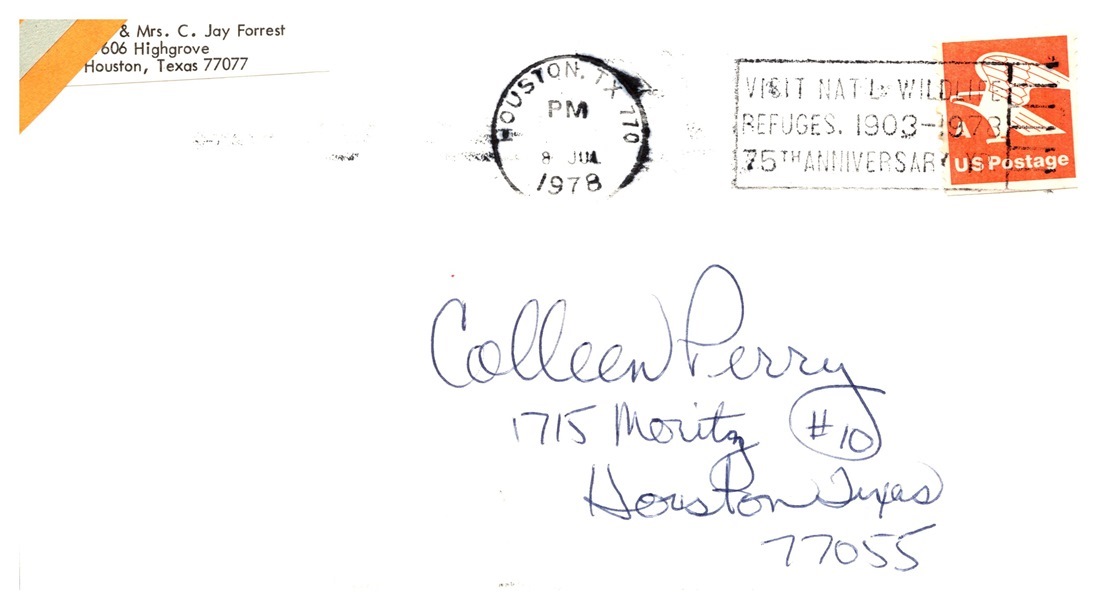 & Mrs. C. Jay Forrest
606 Highgrove
Houston, Texas 77077
HOUSTON, TX 770
PM
8 JUL
1978
VISIT NAT'L WILDLIFE
REFUGES. 1903-1978
75TH ANNIVERSARY
US Postage
Colleen Perry
1715 Moritz #10
Houston Texas
77055